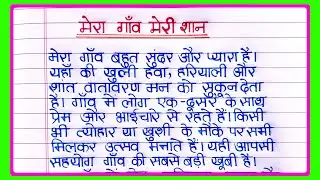 मेरा गाँव मेरी शान
मेरा गाँव बहुत सुंदर और प्यारा है।
यहाँ की खुली हवा, हरियाली और
शांत वातावरण मन को सुकून देता
है। गाँव में लोग एक-दूसरे के साथ
प्रेम और भाईचारे से रहते हैं। किसी
भी त्योहार या खुशी के मौके पर सभी
मिलकर उत्सव मनाते हैं। यही आपसी
सहयोग गाँव की सबसे बड़ी खूबी है।